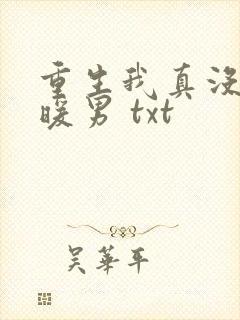 重生我真没
暖男 txt
吴华平